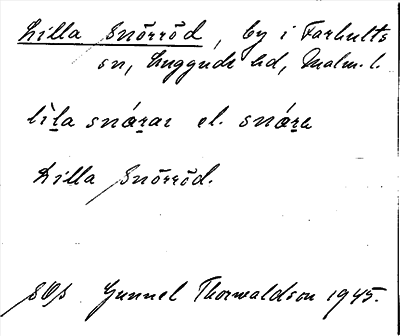 Lilla Snörröd, by i Farhults
sn, Luggude hd, Malm. l.
lìla snœ́rar el. snœ́ra
Lilla Snörröd.
SOs Gunnel Thorwaldson 1945.